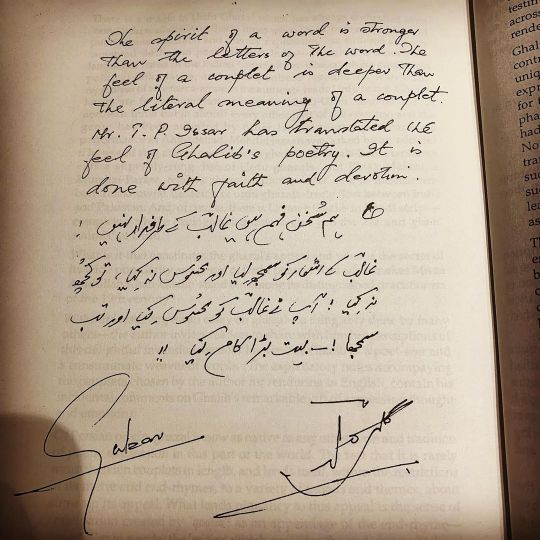 The spirit of a word is stronger
than the letters of the word. The
feel of a couplet is deeper than
the literal meaning of a couplet.
Mr. T. P. Issar has translated the
feel of Ghalib's poetry. It is
done with faith and devotion.
ع ہم سُخن فہم ہیں غالب کے طرفدار نہیں!
غالب کے اشعار کو سمجھ لیا اور محسوس نہ کیا، تو کچھ
نہ کیا! آپ نے غالب کو محسوس کیا اور تب
سمجھا! — بہت بڑا کام کیا!!
Gulzar
گلزار
testin
across
rende
Ghal
contr
uniq
expr
for t
pha
had
No
tra
suc
suc
lea
as